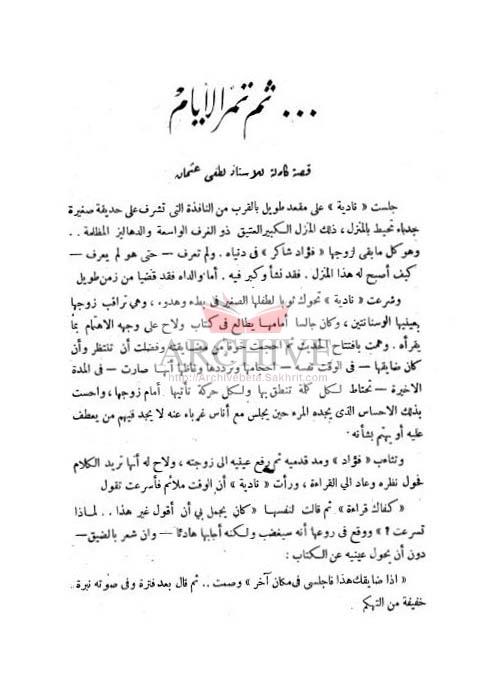 ... ثم تمر الأيام
قصة كاملة للاستاذ لطفى عثمان
جلست « نادية » على مقعد طويل بالقرب من النافذة التى تشرف على حديقة صغيرة
جدباء تحيط بالمنزل ، ذلك المنزل الكبير العتيق ذو الغرف الواسعة والدهاليز المظلمة . .
وهو كل ما بقى لزوجها « فؤاد شاكر » فى دنياه . ولم تعرف — حتى هو لم يعرف —
كيف أصبح له هذا المنزل . فقد نشأ وكبر فيه . أما والداه فقد قضيا من زمن طويل
وشرعت « نادية » تحوك ثوبا لطفلها الصغير فى بطء وهدوء ، وهى تراقب زوجها
بعينيها الوسنانتين ، وكان جالسا أمامها يطالع فى كتاب ولاح على وجهه الاهتمام بما
يقرأه . وهمت بافتتاح الحديث ثم احجمت خوفا من مضايقته وفضلت أن تنتظر وأن
كان ضايقها — فى الوقت نفسه — احجامها وترددها وظنها أنها صارت — فى المدة
الاخيرة — تحتاط لكل كلمة تنطق بها ولكل حركة تأتيها أمام زوجها ، واحست
بذلك الاحساس الذى يجده المرء حين يجلس مع أناس غرباء عنه لا يجد فيهم من يعطف
عليه أو يهتم بشأنه .
وتثاءب « فؤاد » ومد قدميه ثم رفع عينيه الى زوجته ، ولاح له أنها تريد الكلام
فحول نظره وعاد الى القراءة ، ورأت « نادية » أن الوقت ملائم فأسرعت تقول
« كفاك قراءة » ثم قالت لنفسها « كان يجمل بى أن أقول غير هذا . . لماذا
تسرعت ؟ » ووقع فى روعها أنه سيغضب ولكنه أجابها هادئا — وان شعر بالضيق —
دون أن يحول عينيه عن الكتاب :
« اذا ضايقك هذا فاجلسى فى مكان آخر » وصمت . . ثم قال بعد فترة وفى صوته نبرة
خفيفة من التهكم
ARCHIVE
http://Archivebeta.Sakhrit.com